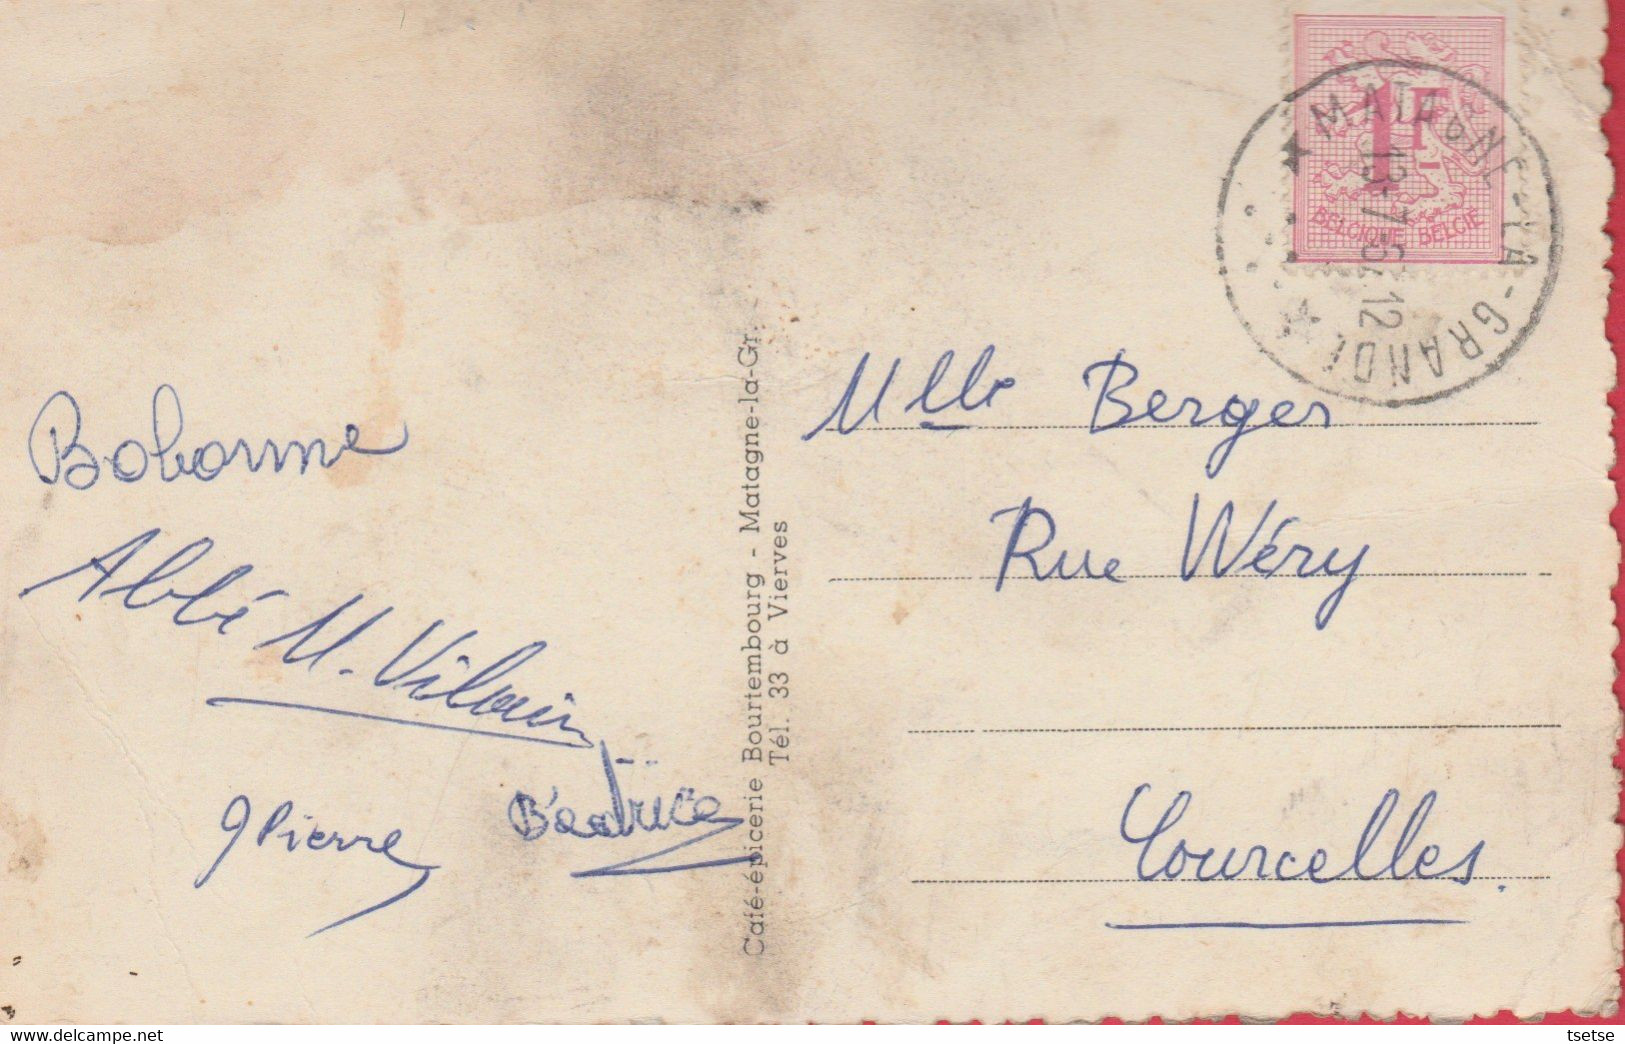 Bobonne
Abbé M. Vilain
JPierre
Béatrice
Café-épicerie Bourtembourg - Matagne-la-Gr.
Tél. 33 à Vierves
1F
BELGIQUE BELGIË
MATAGNE-LA-GRANDE
12
Mlle Berger
Rue Wéry
Courcelles.
delcampe.net
tsetse